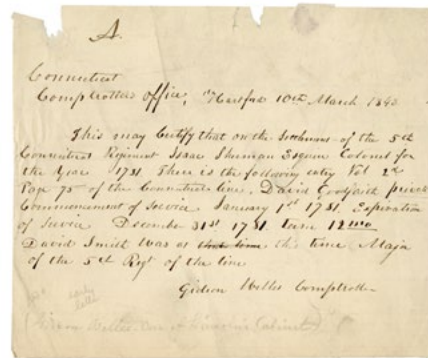 A.
Connecticut
Comptrollers Office, Hartford 10th March 1843
This may Certify that on the of the 5th
Connecticut Regiment Isaac Sherman Esquire Colonel for
the Year 1781. There is the following entry Vol 2d
Page 75 of the Connecticut lines. David Goodfaith private
Commencement of Service January 1st 1781. Expiration
of Service December 31st 1781. Term 12 mo
David Smith was at that time this time Major
of the 5th Regt of the line
Gideon Welles Comptroller
early
(Gideon Welles Lincoln's Cabinet)